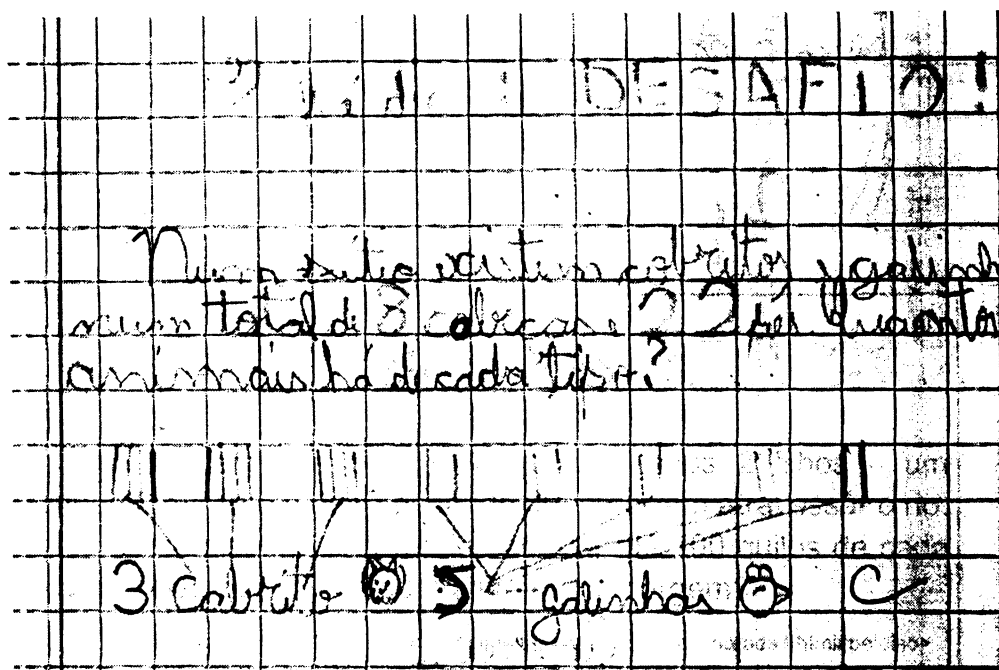 DESAFIO!
Num sitio existem cabritos y galinh
num total de 8 cabecas e 22 pés Quantos
animais há de cada tipo?
3 Cabrito 5 galinhas C